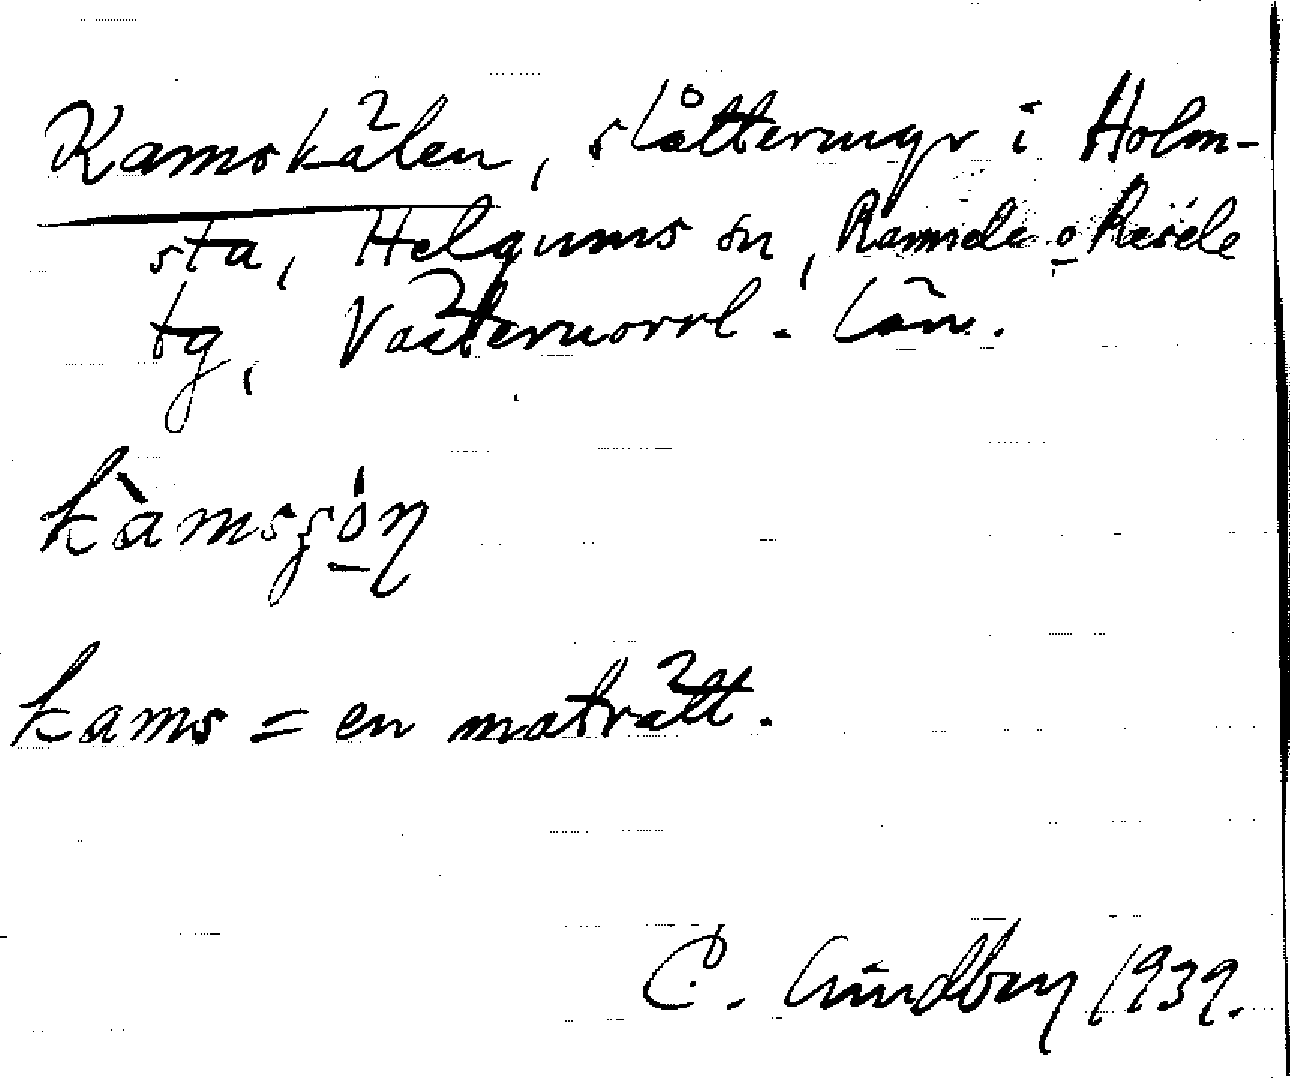 Kamskälen, slåttermyr i Holm-
sta, Helgums sn, Ramsele o Resele
tg, Västernorrl. län.
kams = en maträtt.
C. Lindberg 1939.